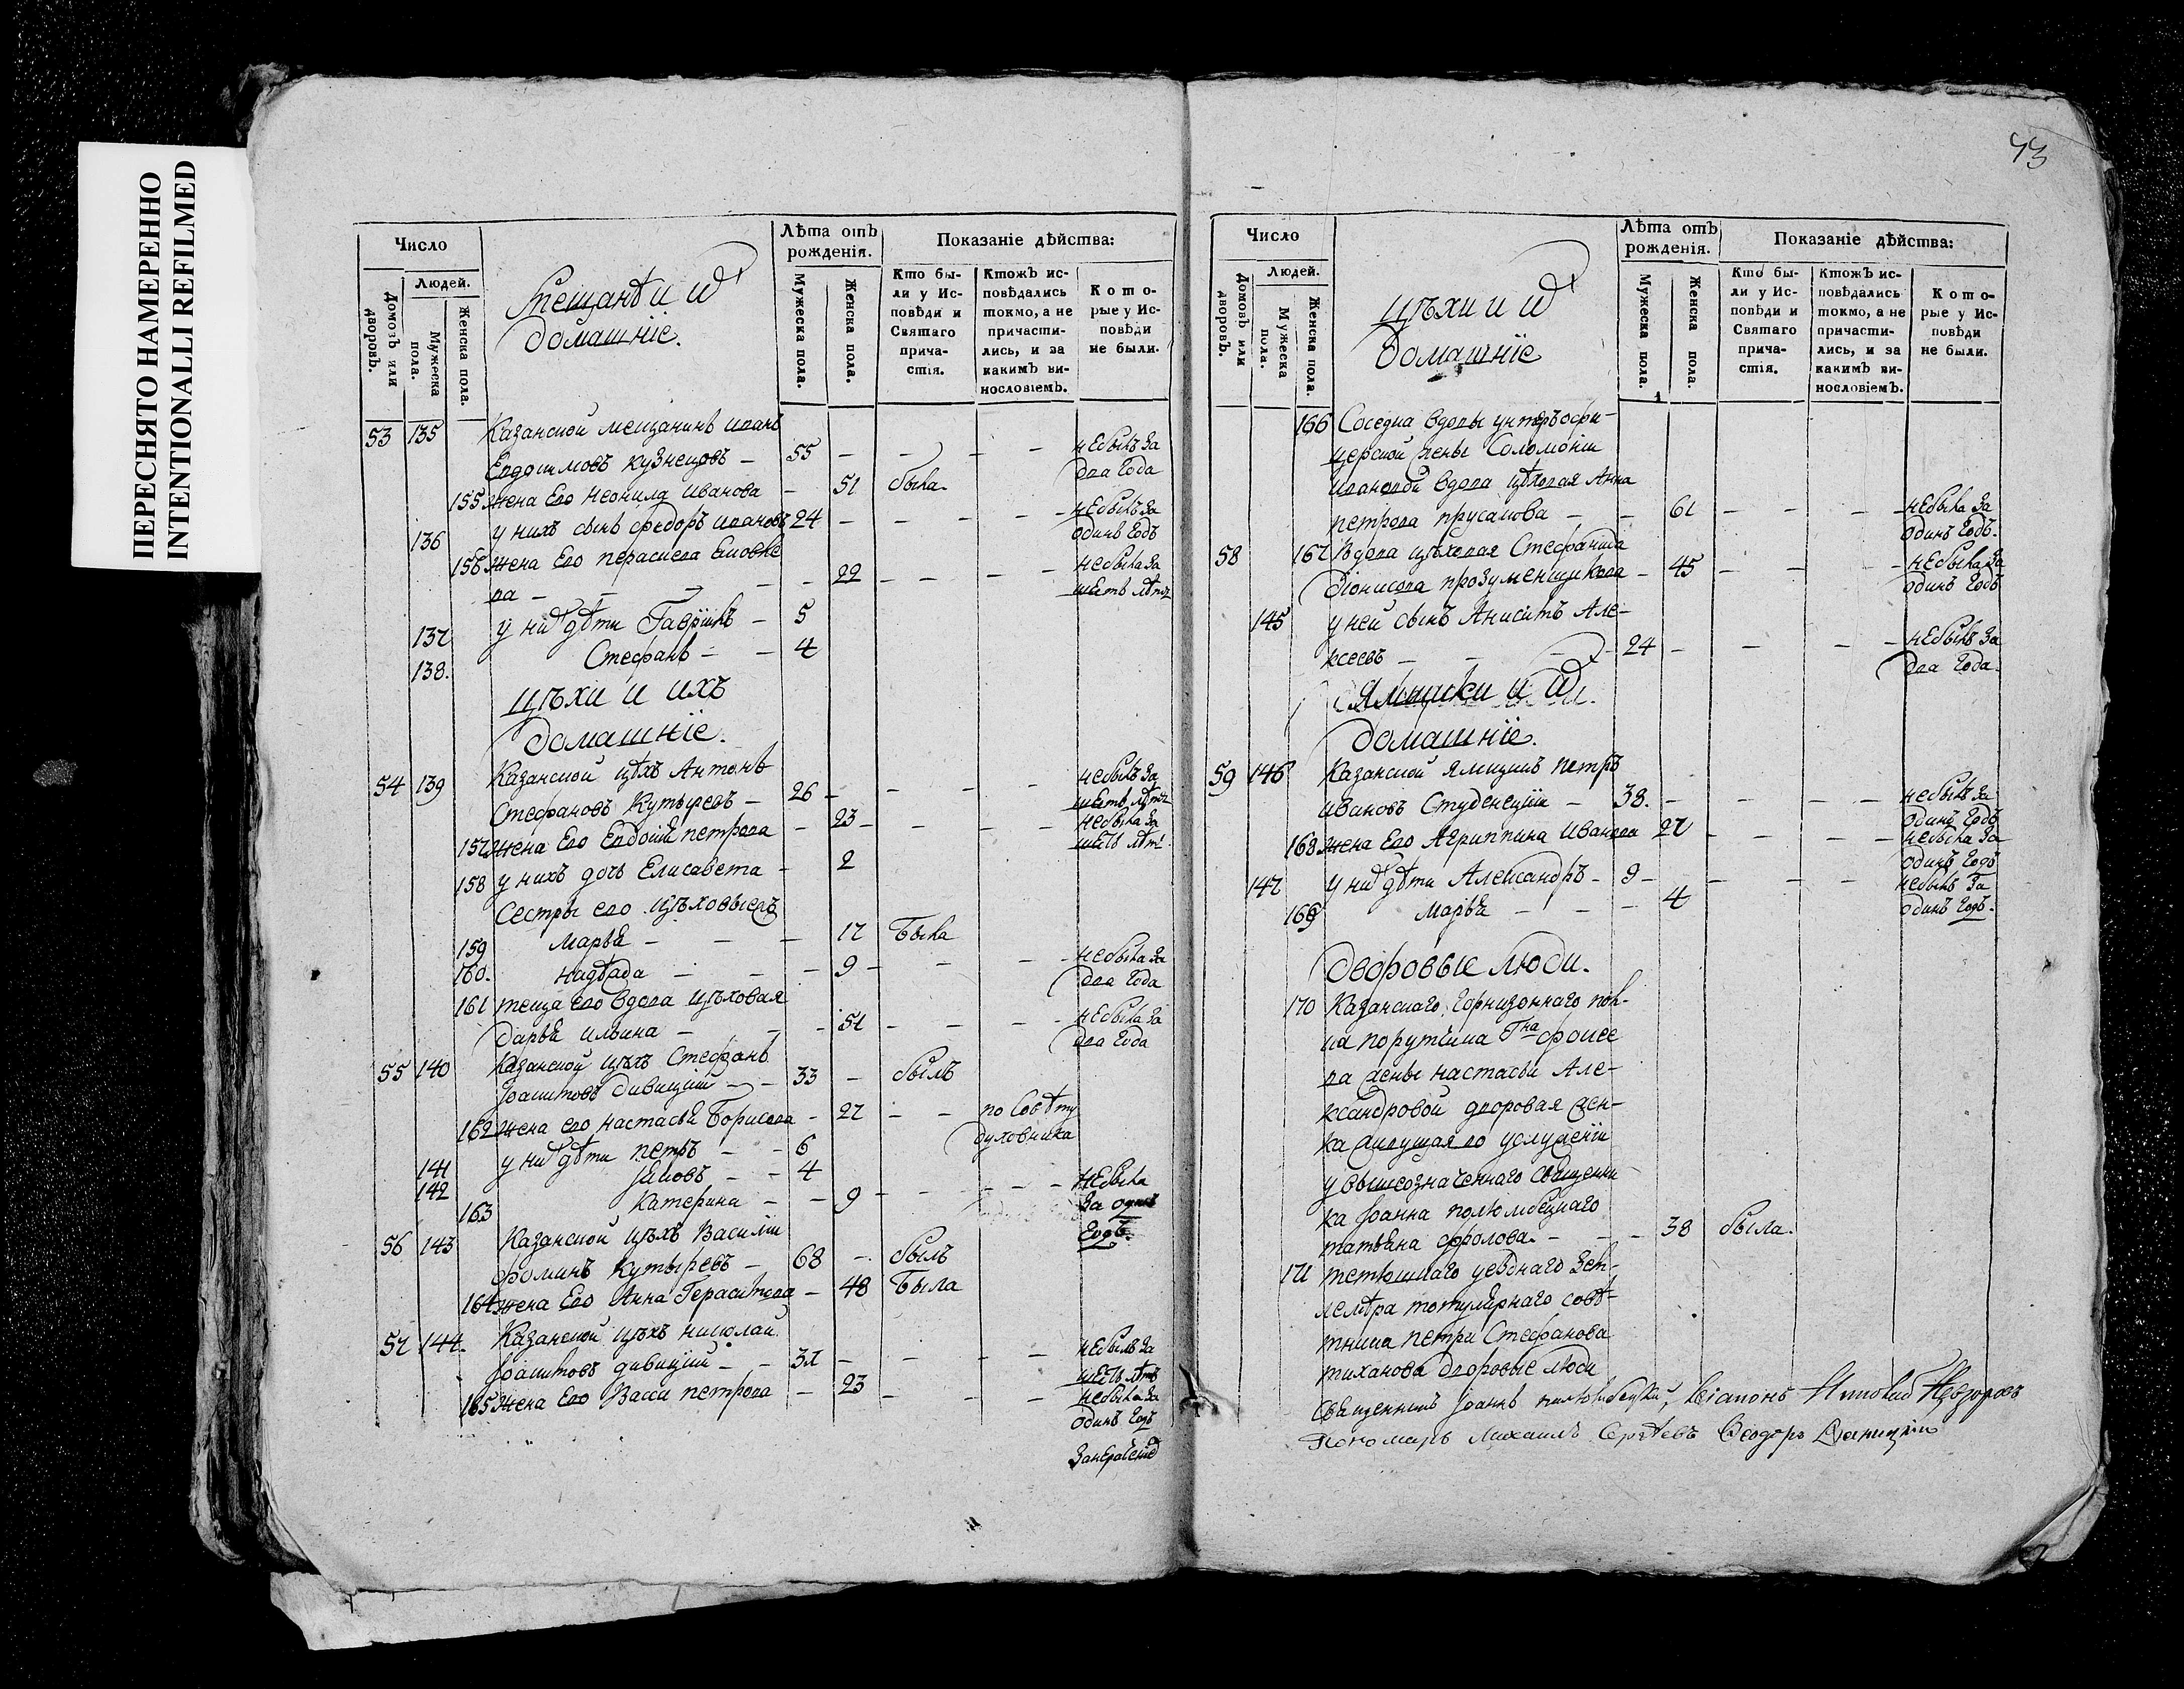 ПЕРЕСНЯТО НАМЕРЕННО
INTENTIONALLI REFILMED
Число
Людей.
Домовъ или дворовъ.
Мужеска пола.
Женска пола.
Мещанѣ и и᷵х
домашніе.
Лѣта отъ рожденія.
Мужеска пола.
Женска пола.
Показаніе дѣйства:
Кто были у Исповѣди и Святаго причастія.
Ктожъ исповѣдались токмо, а не причастились, и за какимъ винословіемъ.
Которые у Исповѣди не были.
53 135 Казанской мещанинъ иванъ
Евдокимовъ кузнецовъ – 55 – – – – небылъ за два года
155 жена Его неонила Иванова – 51 была
136 у нихъ сынъ федоръ ивановъ 24 – – – – небылъ за одинъ годъ
156 жена Его параскева
ва – – – 22 – – – – небыла за шеть лѣтъ
137 у них дѣти Гавріилъ – 5
138. Стефанъ – – 4
цѣхи и ихъ
домашніе.
54 139 Казанской цѣхъ Антонъ
Стефановъ Кутыревъ – 26 – – – – небылъ за шеть лѣтъ
157 жена Его Евдокія петрова – 23 – – – небыла за шеть лѣтъ
158 у нихъ дочь Елисавета – 2
Сестры его цѣховыежъ
159 марья – – – 17 Была
160. надѣжда – – – 9 – – – небыла за два года
161 теща его вдова цѣховая
дарья ильина – – – 51 – – – – небыла за два года
55 140 Казанской цѣхъ Стефанъ
Іоакимовъ дивицкій – – 33 – былъ
162 жена его настасья Борисова – 27 – – по совѣту духовника
141 у них дѣти петръ – – 6
142 Іаковъ – – 4
163 Катерина – – 9 – – – – небыла за одинъ годъ.
56 143 Казанской цѣхъ Василіи
фоминъ кутыревъ – 68 – былъ
164 жена Его Анна Герасимова – 48 Была
57 144. Казанской цѣхъ николаи
Іоакимовъ дивицкій – – 31 – – – – небылъ за шеть лѣтъ
165 жена Его Васса петрова – 23 – – – небыла за одинъ годъ
43
Число
Людей.
Домовъ или дворовъ.
Мужеска пола.
Женска пола.
цѣхи и и᷵х
домашніе
Лѣта отъ рожденія.
Мужеска пола.
Женска пола.
Показаніе дѣйства:
Кто были у Исповѣди и Святаго причастія.
Ктожъ исповѣдались токмо, а не причастились, и за какимъ винословіемъ.
Которые у Исповѣди не были.
166 Соседка вдовы унтеръ офи-
церской жены Соломоніи
ивановой вдова цѣховая Анна
петрова прусакова – – 61 – – – – небыла за одинъ годъ.
58 167 вдова цѣховая Стефанида
діонисова прозументщикова – 45 – – – небыла за одинъ годъ
145 у ней сынъ Аникитъ Але-
ксеевъ – – – – 24 – – – – небылъ за два года.
Ямщики и и᷵х
домашніе.
59 146 Казанской ямщикъ петръ
ивановъ Студенецкіи – 38. – – – – небылъ за одинъ годъ
168 жена Его Агриппина Иванова 27 – – – небыла за одинъ годъ
147 у них дѣти Александръ – 9 – – – – небылъ за одинъ годъ.
169 марья – – – 4
дворовые люди.
170 Казанскаго горнизоннаго пол-
ка порутчика Гна
ва жены настасьи Але-
ксандровой дворовая жен-
ка живущая во услуженіи
у вышеозначеннаго священни
ка Іоанна
татьяна фролова. – – – 38 была.
171 тетюшкаго уезднаго Зем-
лемѣра титулярнаго совѣ-
тника петра Стефанова
тиханова дворовые люди
Священникъ Іоаннъ Діаконъ
Пономарь Михаилъ Сергѣевъ Ѳеодоръ